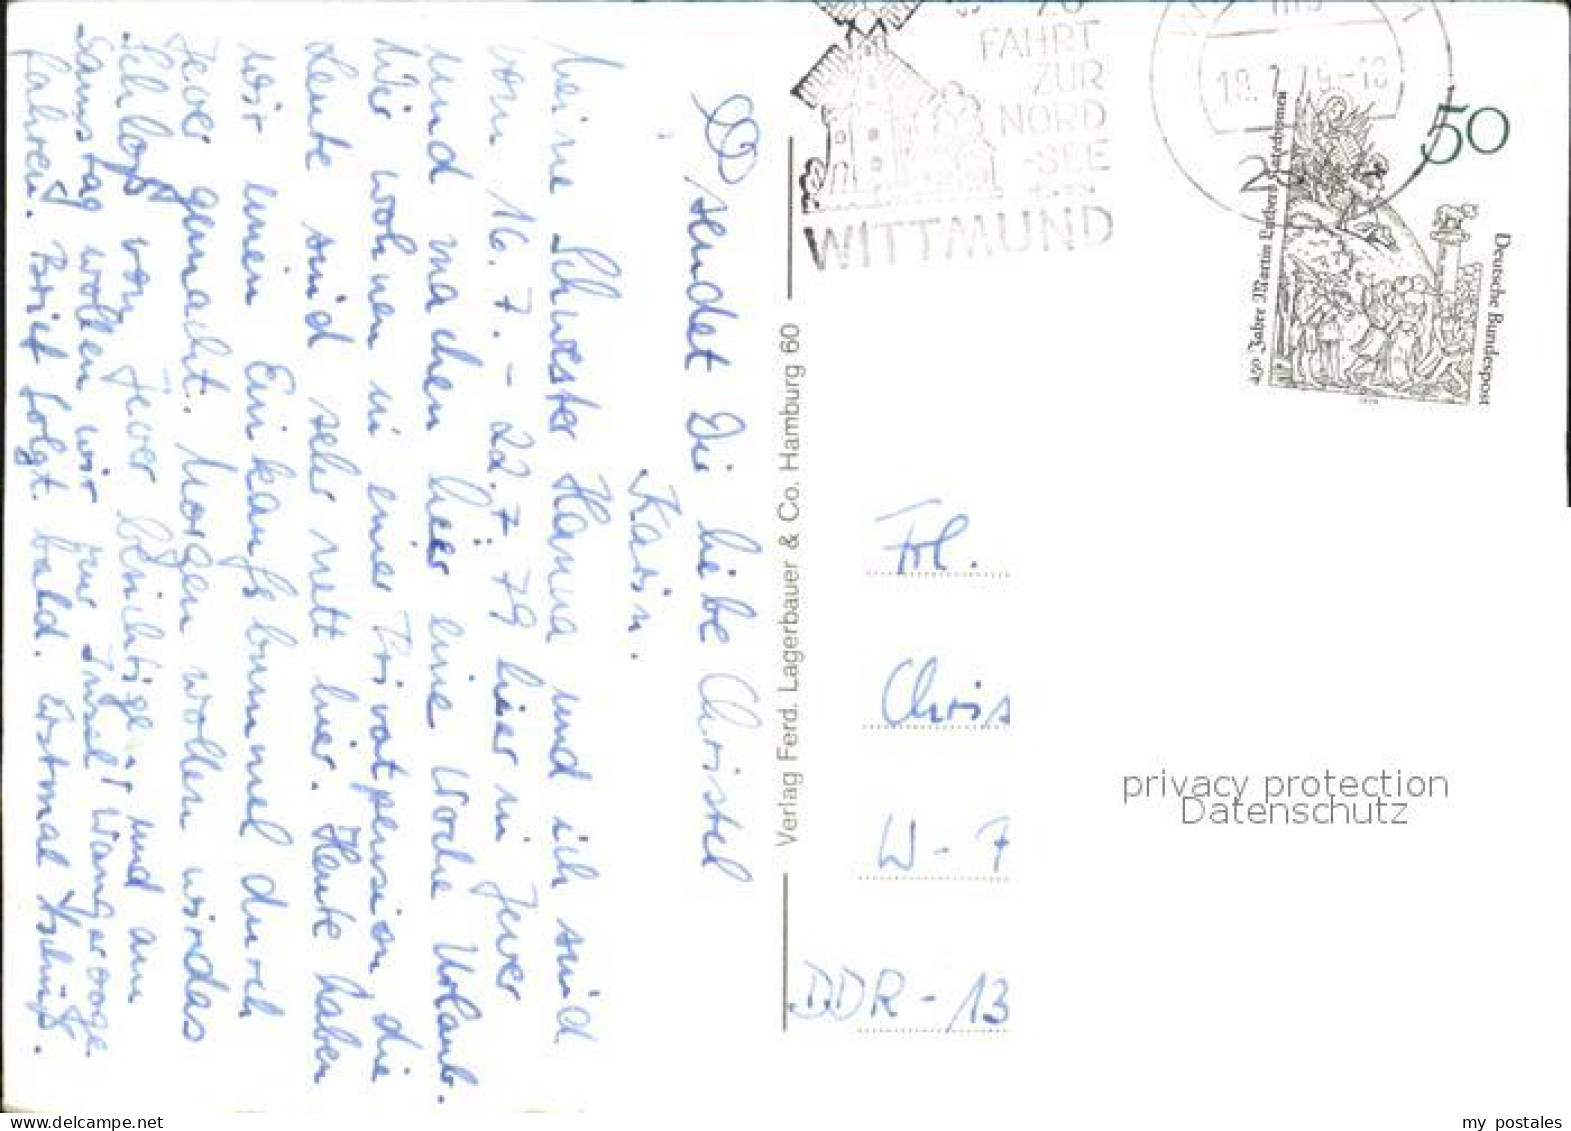 Meine Schwester Hanna und ich sind
vom 16.7. - 22.7.79 hier in Jever
und machen hier eine Woche Urlaub.
Wir wohnen in einer Privatpension die
Leute sind sehr nett hier. Heute haben
wir einen Einkaufsbummel durch
Jever gemacht. Morgen wollen wir das
Schloß von Jever besichtigen und am
Samstag wollen wir zur Insel Wangerooge
fahren. Brief folgt bald. Erstmal Tschüß.
sendet Dir liebe Christel
Karin.
Verlag Ferd. Lagerbauer & Co. Hamburg 60
FAHRT
ZUR
NORD
-SEE
WITTMUND
50
Deutsche Bundespost
450 Jahre Martin Luthers Katechismen
Frl.
Chris
W - F
DDR - 13
privacy protection
Datenschutz
www.delcampe.net
my_postales